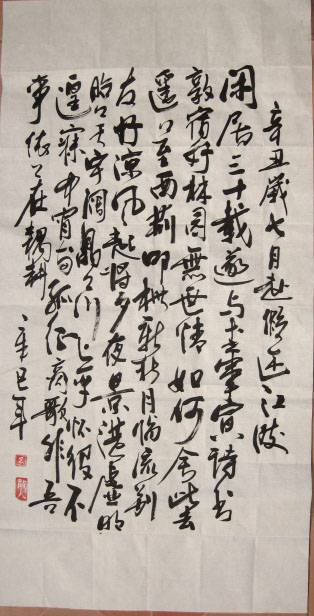 辛丑歲七月赴假还江陵
闲居三十載遂与塵事冥詩书
敦宿好林園無世情如何舍此去
遥〻至西荆叩枻新秋月临流别
友生凉风起将夕夜景湛虚明
昭〻天宇阔皛〻川上平怀役不
遑寐中宵尚孤征商歌非吾
事依〻在耦耕 辛巳年